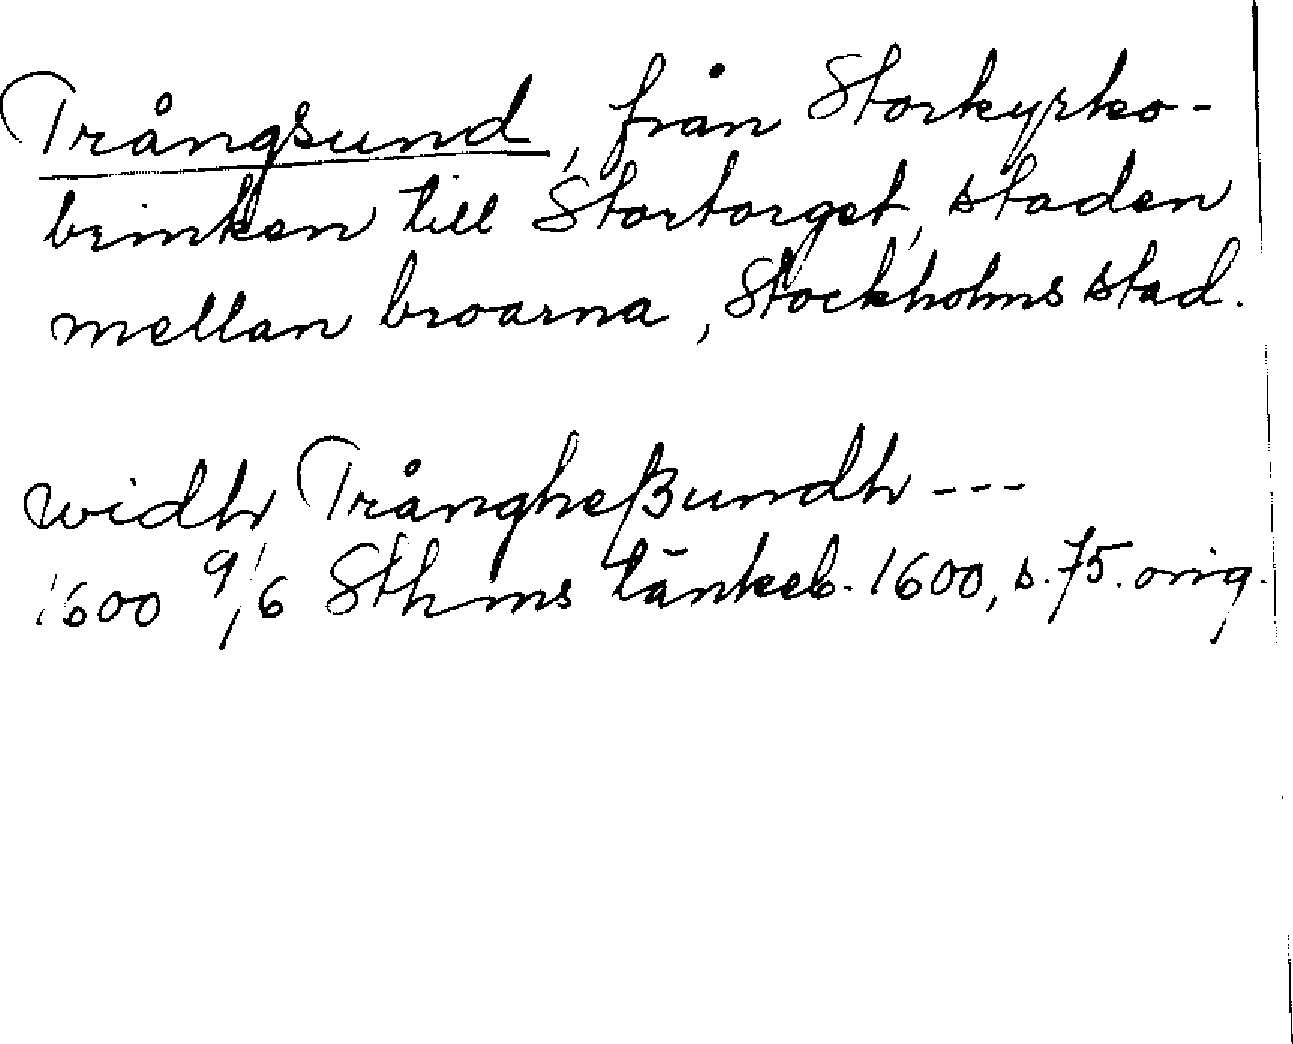 Trångsund, från Storkyrko-
brinken till Stortorget, staden
mellan broarna, Stockholms stad.
widh Trångheßundh ---
1600 9/6 Sthms tänkeb. 1600, s. 75. orig.